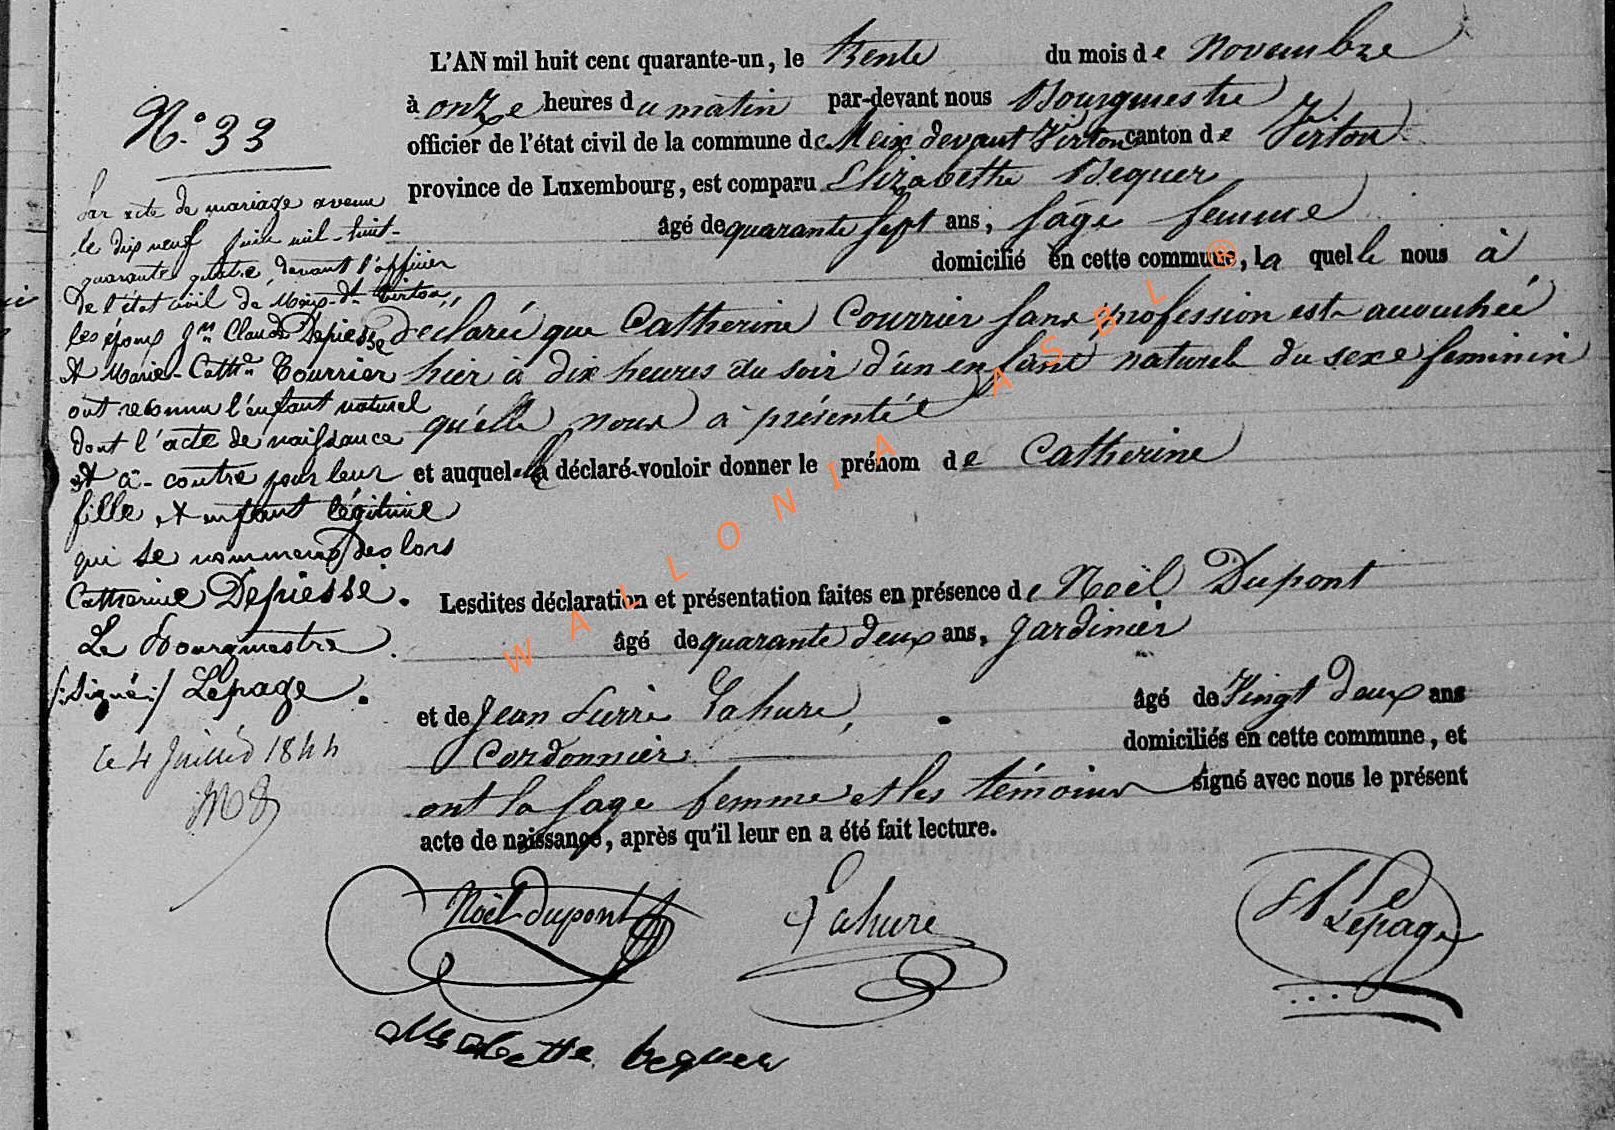 L'AN mil huit cent quarante-un, le trente du mois de Novembre
à onze heures du matin par-devant nous Bourgmestre
officier de l'état civil de la commune de Meix devant Virton canton de Virton
province de Luxembourg, est comparu Elizabethe Bequer
âgé de quarante sept ans, sage femme
domicilié en cette commune, la quelle nous à
declareé que Catherine Courrier sans profession est accouchée
hier à dix heures du soir d'un enfant naturel du sexe feminin
qu'elle nous à présenté
et auquel elle a déclaré vouloir donner le prénom de Catherine
Lesdites déclaration et présentation faites en présence de Noël Dupont
âgé de quarante deux ans, Jardinier
et de Jean Pierre Lahure, âgé de Vingt deux ans
Cordonnier domiciliés en cette commune, et
ont la sage femme et les témoins signé avec nous le présent
acte de naissance, après qu'il leur en a été fait lecture.
Noël dupont Lahure Lepage
bequer
N.° 33
Par acte de mariage avenu
le dix neuf juin mil-huit-
quarante quatre devant l'officier
de l'état civil de Meix-dt-Virton,
les époux Jn Claude Depiesse
et Marie-Cathne Courrier
ont reconnu l'enfant naturel
dont l'acte de naissance
est à-contre pour leur
fille et enfant légitime
qui se nommera dès lors
Catherine Depiesse.
Le Bourgmestre
/:Signé:/ Lepage.
le 4 Juillet 1844
WALLONIA ASBL ®